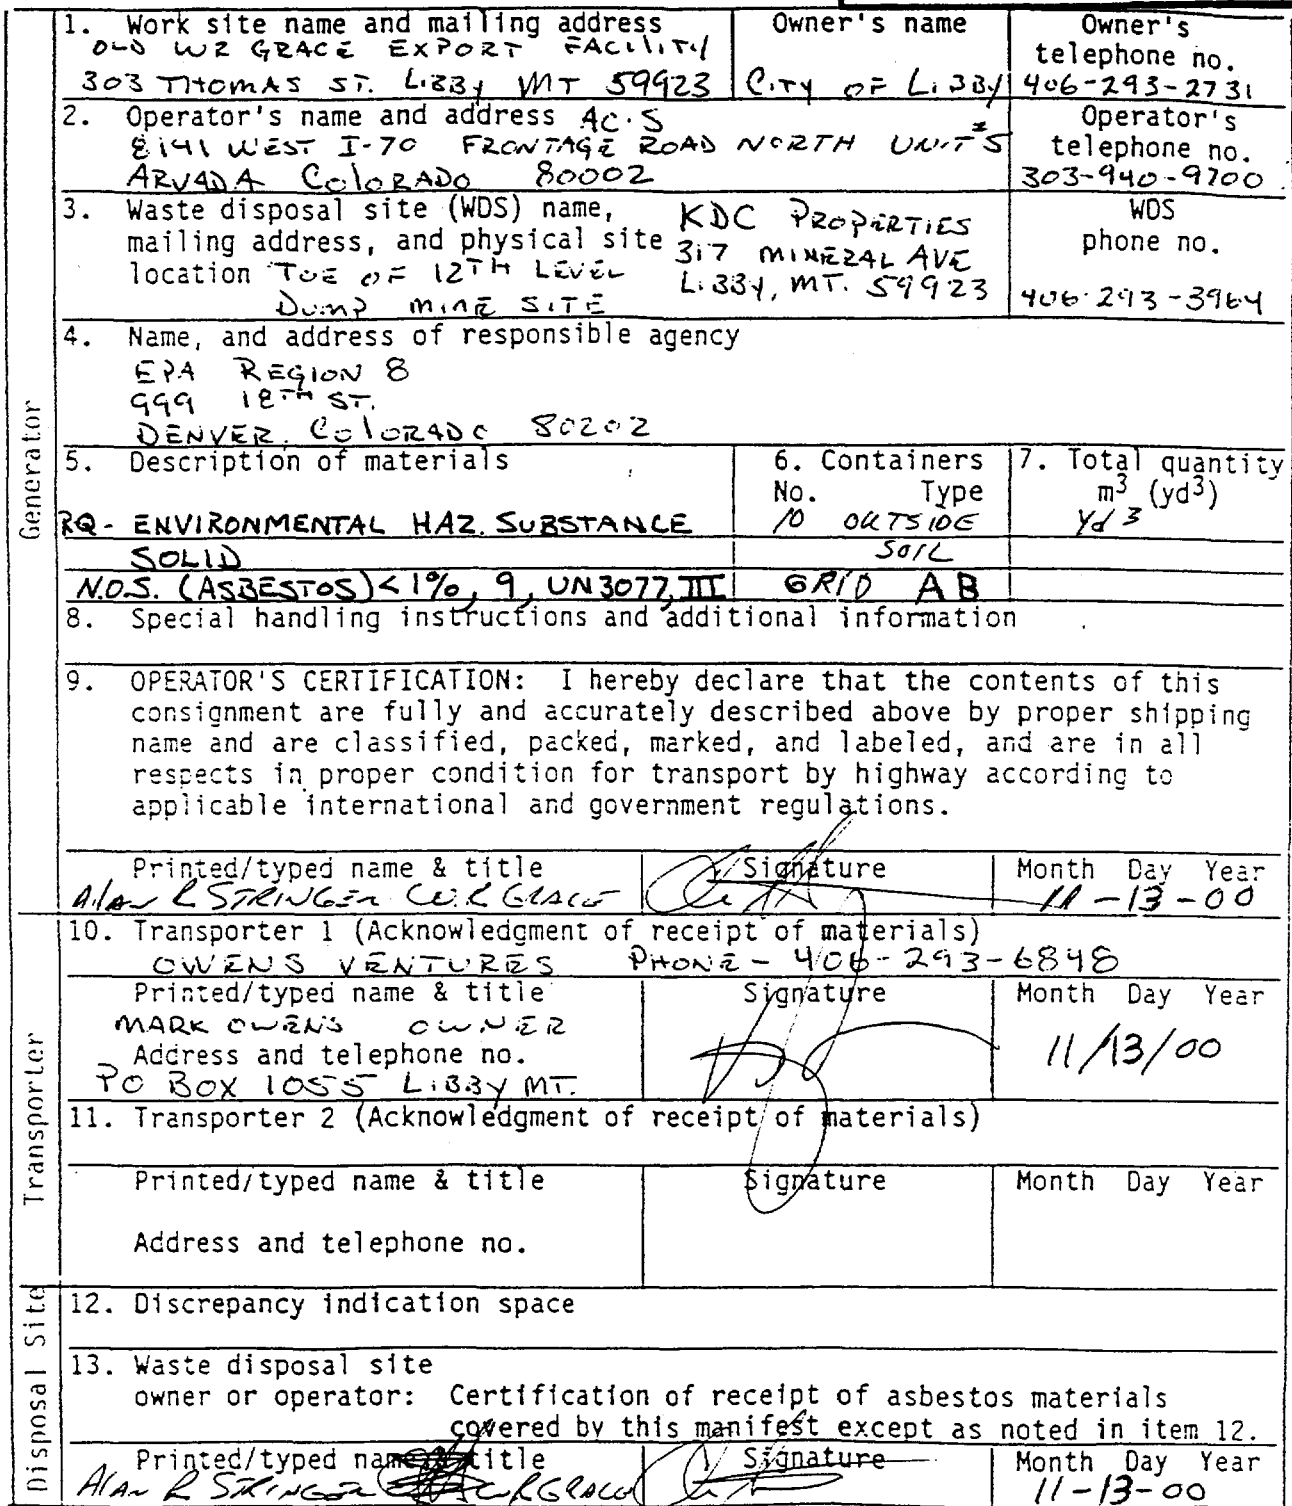 1. Work site name and mailing address
OLD WR GRACE EXPORT FACILITY
303 THOMAS ST. LIBBY MT 59923
Owner's name
CITY OF LIBBY
Owner's
telephone no.
406-293-2731
2. Operator's name and address AC·S
8141 WEST I-70 FRONTAGE ROAD NORTH UNIT #5
ARVADA COLORADO 80002
Operator's
telephone no.
303-940-9700
3. Waste disposal site (WDS) name,
mailing address, and physical site
location TOE OF 12TH LEVEL
DUMP MINE SITE
KDC PROPERTIES
317 MINERAL AVE
LIBBY, MT. 59923
WDS
phone no.
406-293-3964
4. Name, and address of responsible agency
EPA REGION 8
999 18TH ST.
DENVER, COLORADO 80202
Generator
5. Description of materials
RQ- ENVIRONMENTAL HAZ. SUBSTANCE
SOLID
N.O.S. (ASBESTOS) <1%, 9, UN3077, III
6. Containers
No. Type
10 OUTSIDE
SOIL
GRID AB
7. Total quantity
m3 (yd3)
Yd 3
8. Special handling instructions and additional information
9. OPERATOR'S CERTIFICATION: I hereby declare that the contents of this
consignment are fully and accurately described above by proper shipping
name and are classified, packed, marked, and labeled, and are in all
respects in proper condition for transport by highway according to
applicable international and government regulations.
Printed/typed name & title
Alan R STRINGER W.R GRACE
Signature
Month Day Year
11-13-00
Transporter
10. Transporter 1 (Acknowledgment of receipt of materials)
OWENS VENTURES PHONE - 406-293-6848
Printed/typed name & title
MARK OWENS OWNER
Address and telephone no.
PO BOX 1055 LIBBY MT.
Signature
Month Day Year
11/13/00
11. Transporter 2 (Acknowledgment of receipt of materials)
Printed/typed name & title
Signature
Month Day Year
Address and telephone no.
Disposal Site
12. Discrepancy indication space
13. Waste disposal site
owner or operator: Certification of receipt of asbestos materials
covered by this manifest except as noted in item 12.
Printed/typed name & title
Alan R STRINGER W R GRACE
Signature
Month Day Year
11-13-00